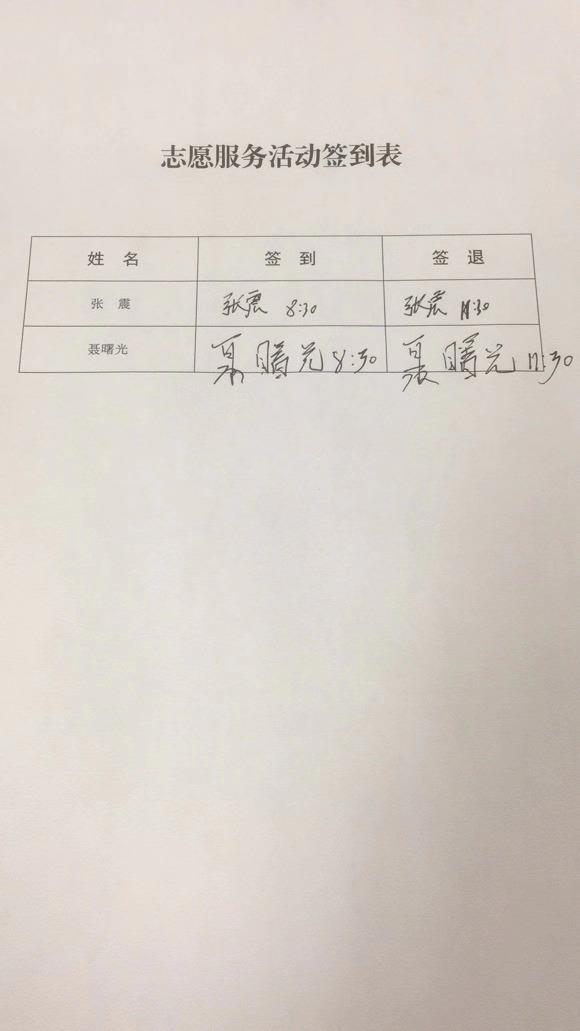 志愿服务活动签到表
姓 名 签 到 签 退
张 震 张震 8:30 张震 11:30
聂曙光 聂曙光 8:30 聂曙光 11:30